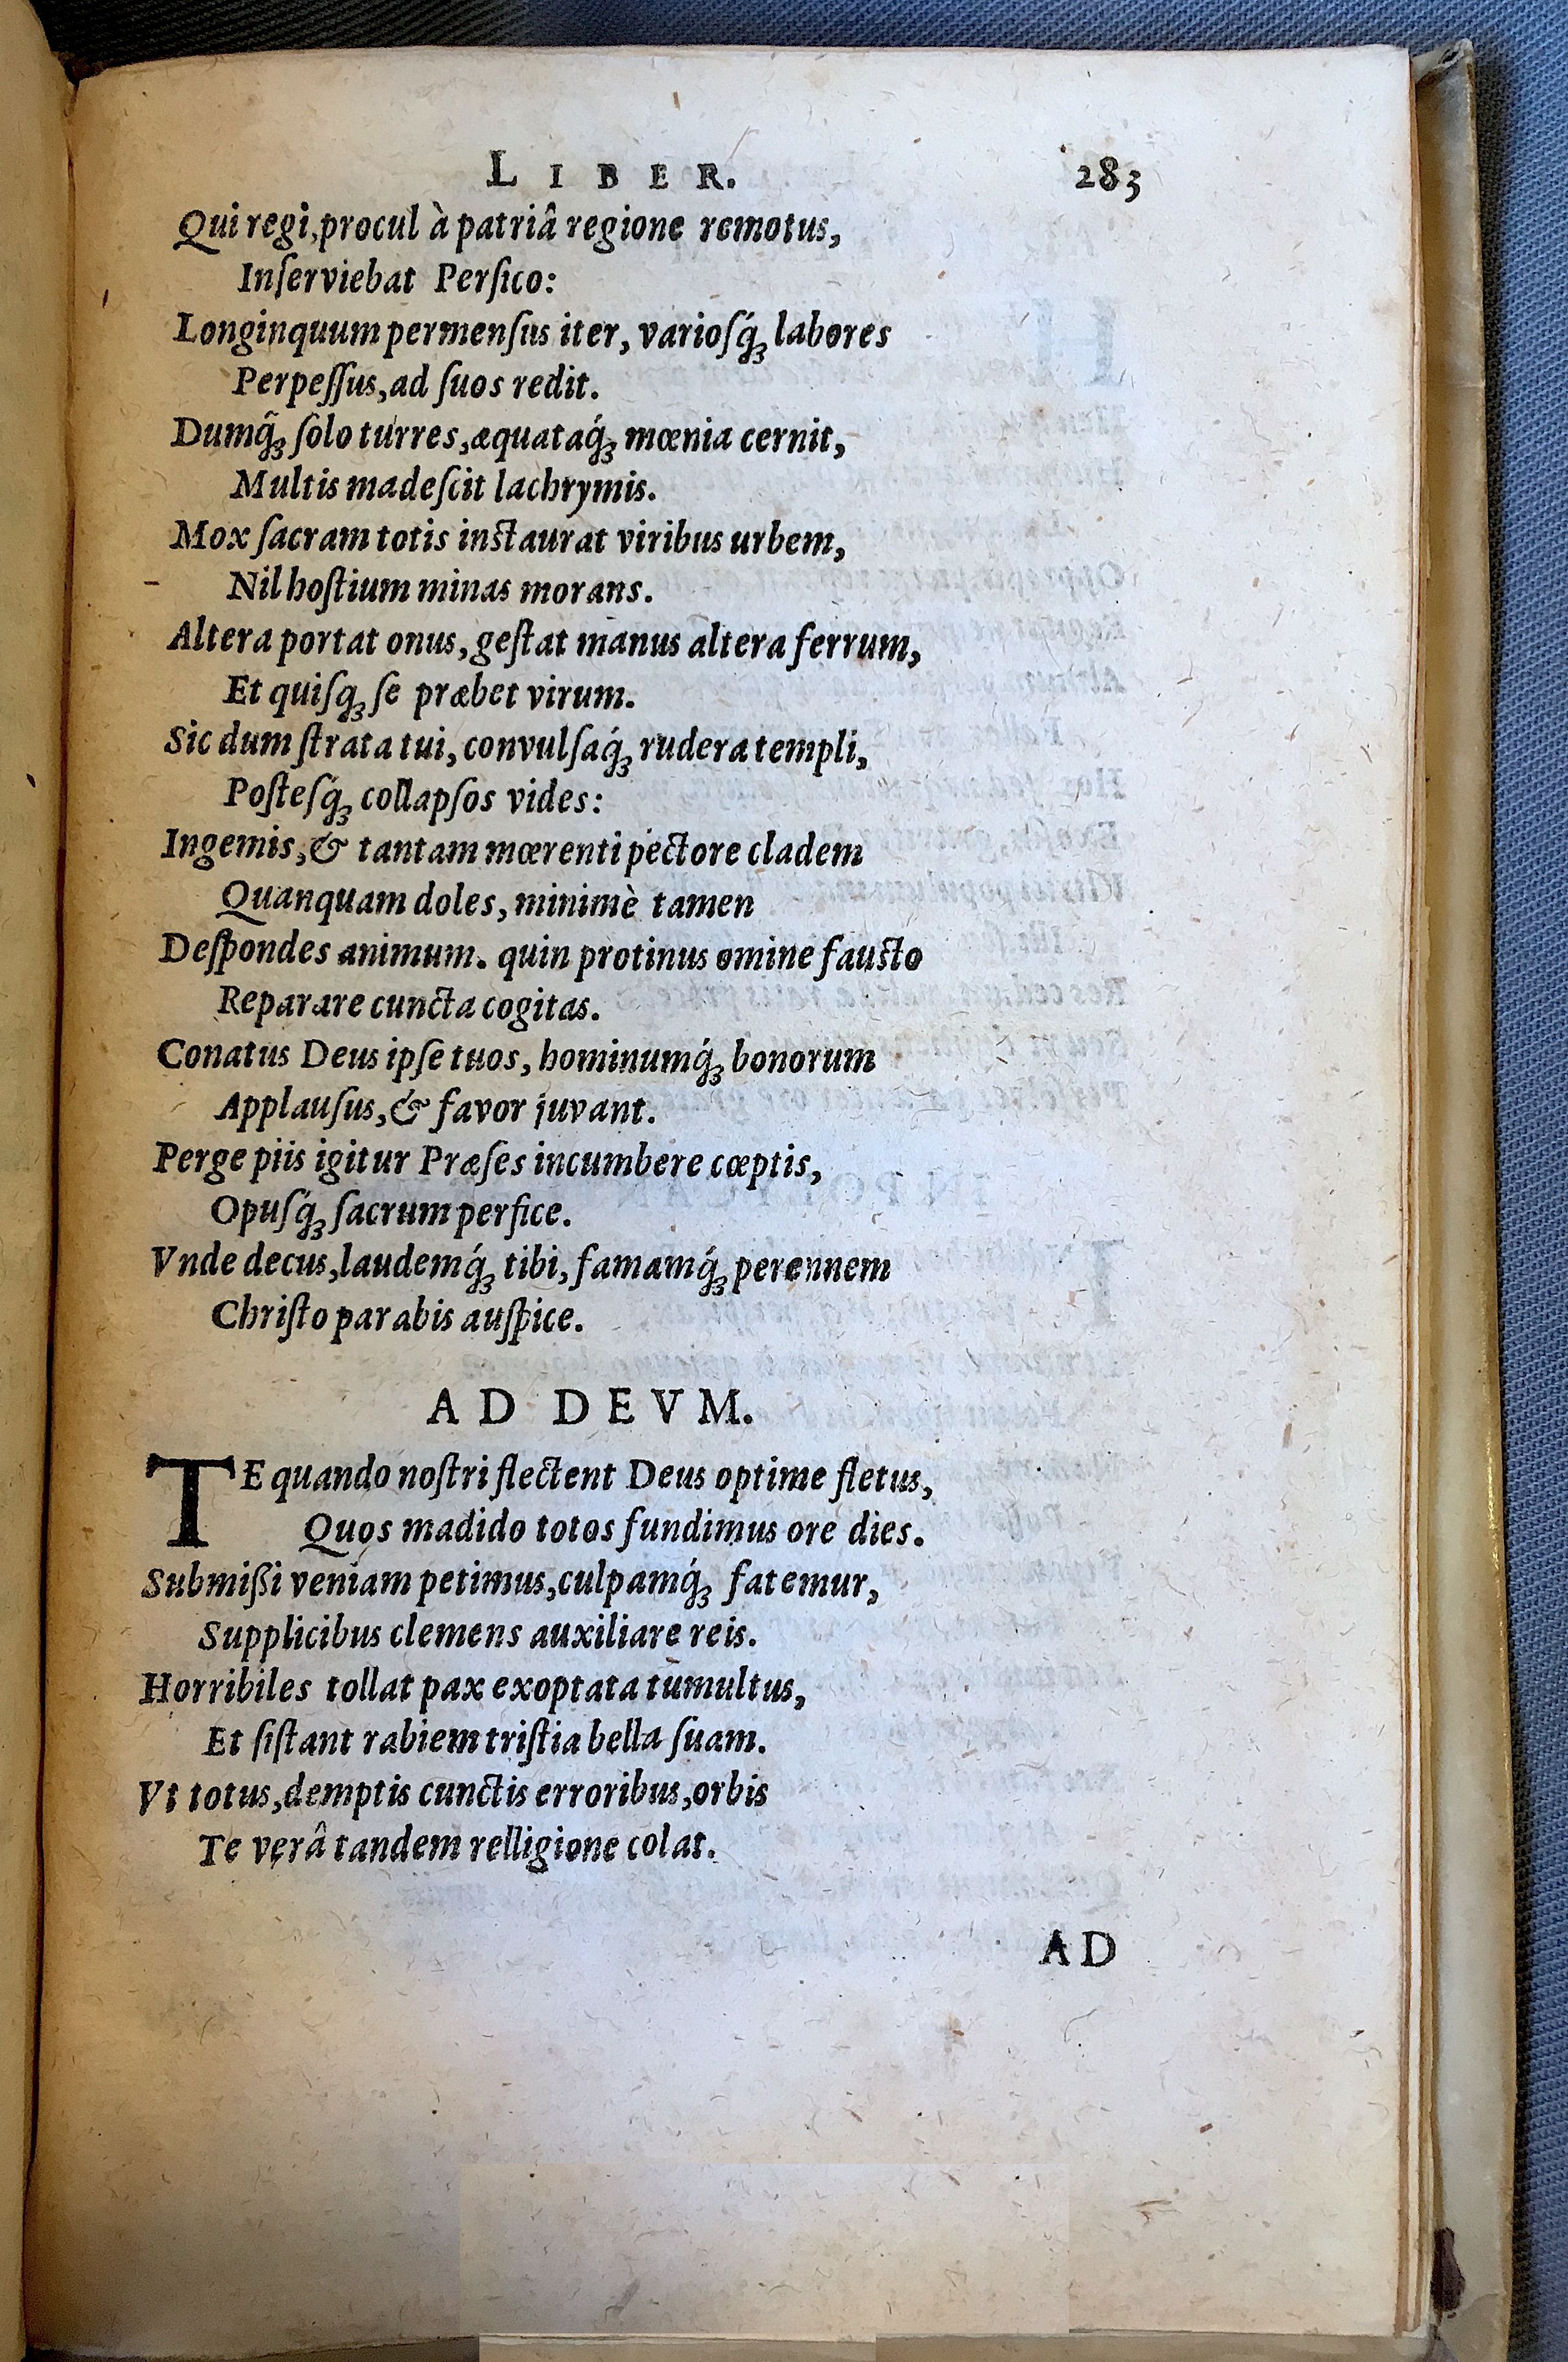 LIBER. 283
Qui regi, procul à patriâ regione remotus,
Inſerviebat Perſico:
Longinquum permenſus iter, varioſq́ꝫ labores
Perpeſſus, ad ſuos redit.
Dumq̃ꝫ ſolo turres, æquataq́ꝫ mœnia cernit,
Multis madeſcit lachrymis.
Mox ſacram totis inſtaurat viribus urbem,
Nil hoſtium minas morans.
Altera portat onus, geſtat manus altera ferrum,
Et quiſqꝫ ſe præbet virum.
Sic dum ſtrata tui, convulſaq́ꝫ rudera templi,
Poſteſq́ꝫ collapſos vides:
Ingemis, & tantam mœrenti pectore cladem
Quanquam doles, minimè tamen
Deſpondes animum. quin protinus omine fauſto
Reparare cuncta cogitas.
Conatus Deus ipſe tuos, hominumq́ꝫ bonorum
Applauſus, & favor juvant.
Perge piis igitur Præſes incumbere cœptis,
Opuſq́ꝫ ſacrum perfice.
Vnde decus, laudemq́ꝫ tibi, famamq́ꝫ perennem
Chriſto parabis auſpice.
AD DEVM.
TE quando noſtri flectent Deus optime fletus,
Quos madido totos fundimus ore dies.
Submißi veniam petimus, culpamq́ꝫ fatemur,
Supplicibus clemens auxiliare reis.
Horribiles tollat pax exoptata tumultus,
Et ſiſtant rabiem triſtia bella ſuam.
Vt totus, demptis cunctis erroribus, orbis
Te verâ tandem relligione colat.
AD